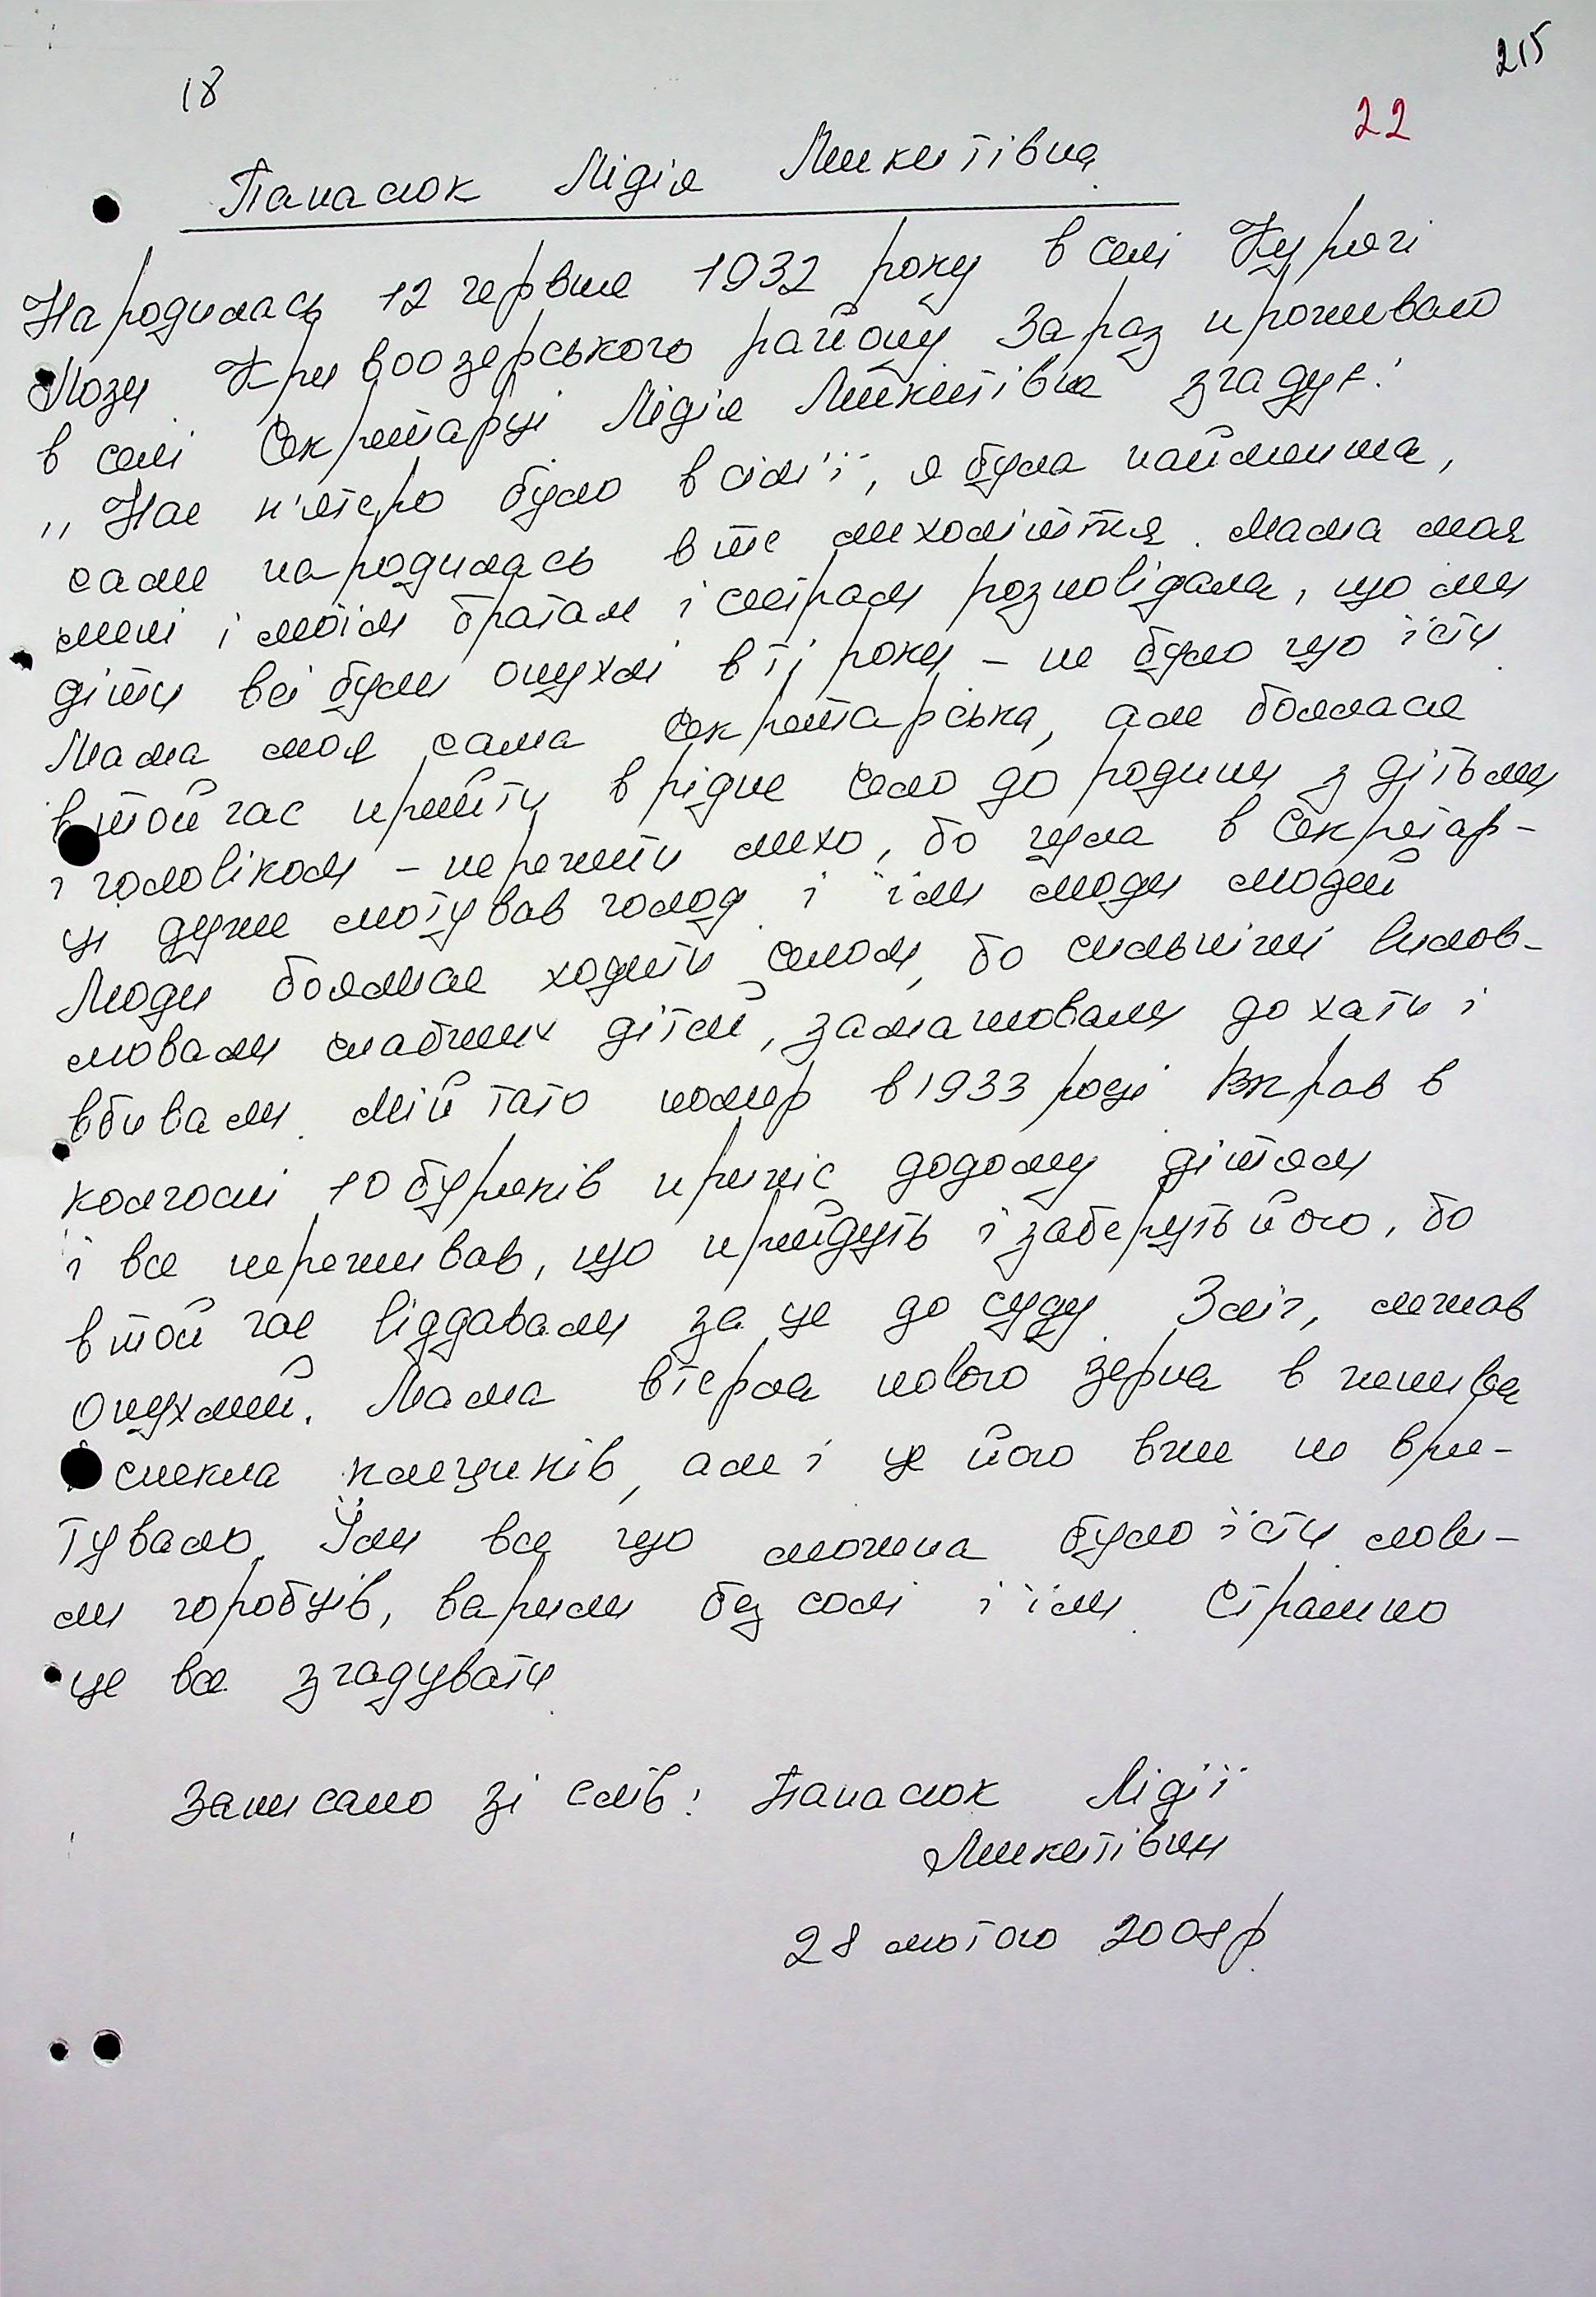 215
18
22
Панасюк Лідія Микитівна
Народилась 12 червня 1932 року в селі Курячі
Лози Кривоозерського району. Зараз проживаю
в селі Секретарці Лідія Микитівна згадує:
„Нас п'ятеро було в сім'ї, я була найменша,
саме народилась в те лихоліття. Мама моя
мені і моїм братам і сестрам розповідала, що ми
діти всі були опухлі в ті роки – не було що їсти.
Мама моя сама секретарська, але боялася
в той час прийти в рідне село до родини з дітьми
і чоловіком – пережити лихо, бо чула в Секретар-
ці дуже лютував голод і їли люди людей
Люди боялися ходити селом, бо сильніші вилов-
лювали слабших дітей, заманювали до хати і
вбивали. Мій тато помер в 1933 році. Вкрав в
колгоспі 10 буряків приніс додому дітям
і все переживав, що прийдуть і заберуть його, бо
в той час віддавали за це до суду. Зліг, лежав
опухлий. Мама втерла нового зерна в жнива
спекла клециків, але і це його вже не вря-
тувало. Їли все що можна було їсти лови-
ли горобців, варили без солі і їли. Страшно
це все згадувати.
Записано зі слів: Панасюк Лідії
Микитівни
28 лютого 2008р.